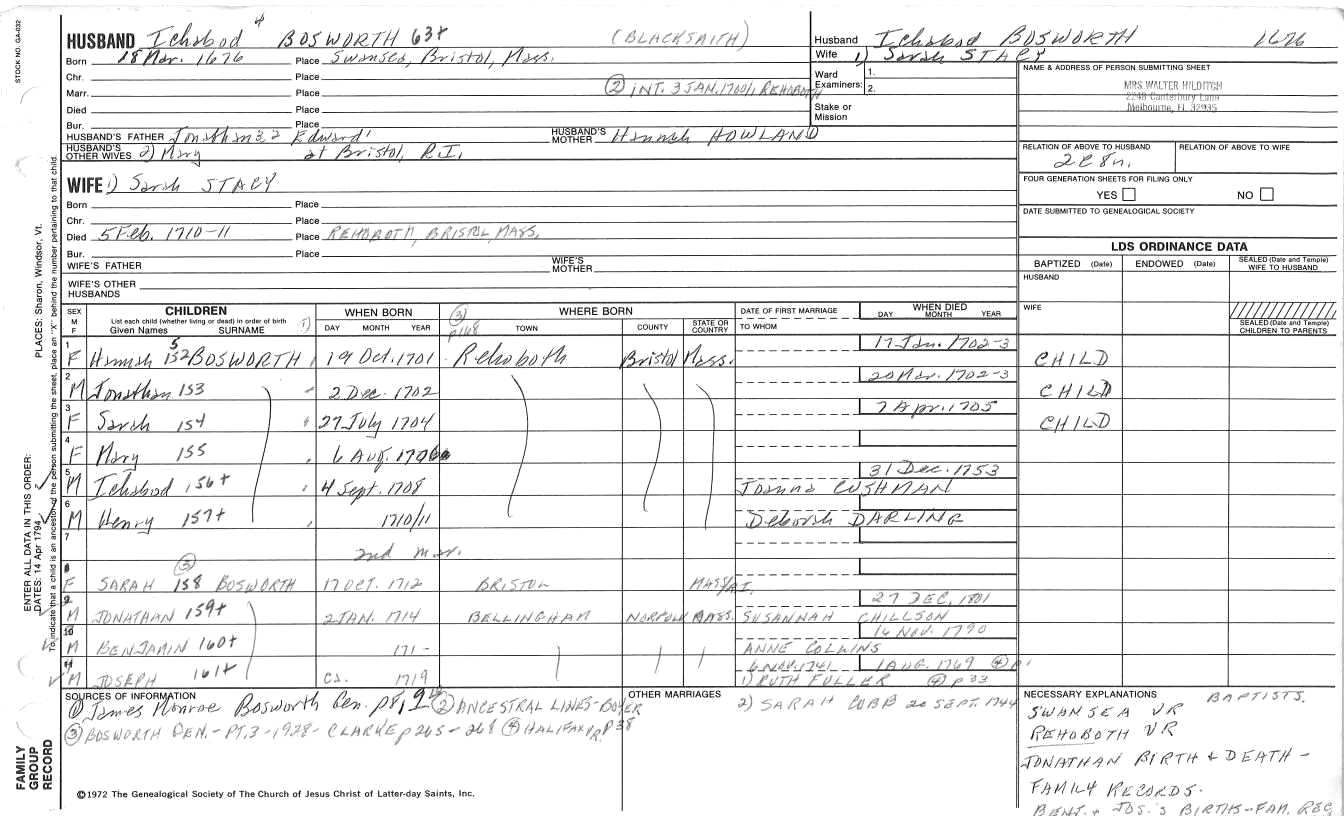 STOCK NO. GA-032
HUSBAND Ichabod 4 BOSWORTH 63+ (BLACKSMITH)
Born 18 Mar. 1676 Place Swansea, Bristol, Mass.
Chr. Place
Marr. Place (2) INT. 3 JAN. 1700/1 REHOBOTH
Died Place
Bur. Place
HUSBAND'S FATHER Jonathan 3, 2 Edward 1 HUSBAND'S MOTHER Hannah HOWLAND
HUSBAND'S OTHER WIVES 2) Mary at Bristol, R.I.
Husband Ichabod BOSWORTH 1676
Wife 1) Sarah STACY
Ward Examiners: 1. 2.
Stake or Mission
NAME & ADDRESS OF PERSON SUBMITTING SHEET
MRS. WALTER HILDITCH
2248 Canterbury Lane
Melbourne, FL 32935
RELATION OF ABOVE TO HUSBAND RELATION OF ABOVE TO WIFE
FOUR GENERATION SHEETS FOR FILING ONLY
YES NO
DATE SUBMITTED TO GENEALOGICAL SOCIETY
WIFE 1) Sarah STACY
Born Place
Chr. Place
Died 5 Feb. 1710-11 Place REHOBOTH, BRISTOL, MASS.
Bur. Place
WIFE'S FATHER WIFE'S MOTHER
WIFE'S OTHER HUSBANDS
LDS ORDINANCE DATA
BAPTIZED (Date) ENDOWED (Date) SEALED (Date and Temple) WIFE TO HUSBAND
HUSBAND
WIFE
SEALED (Date and Temple) CHILDREN TO PARENTS
SEX M F CHILDREN List each child (whether living or dead) in order of birth Given Names SURNAME 1)
WHEN BORN DAY MONTH YEAR
(3) p168
WHERE BORN TOWN COUNTY STATE OR COUNTRY
DATE OF FIRST MARRIAGE TO WHOM
WHEN DIED DAY MONTH YEAR
1 F Hannah 5 152 BOSWORTH 19 Oct. 1701 Rehoboth Bristol Mass. 17 Jan. 1702-3 CHILD
2 M Jonathan 153 2 Dec. 1702 20 Mar. 1702-3 CHILD
3 F Sarah 154 27 July 1704 7 Apr. 1705 CHILD
4 F Mary 155 6 Aug. 1706
5 M Ichabod 156+ 4 Sept. 1708 31 Dec. 1753 Joanna CUSHMAN
6 M Henry 157+ 1710/11 Deborah DARLING
7 2nd mar.
8 F SARAH 158 (3) BOSWORTH 17 OCT. 1712 BRISTOL MASS/R.I.
9 M JONATHAN 159+ 2 JAN. 1714 BELLINGHAM NORFOLK MASS. 27 DEC. 1801 SUSANNAH CHILLSON
10 M BENJAMIN 160+ 171- 16 NOV. 1790 ANNE COLLINS
11 M JOSEPH 161+ ca. 1719 6 NOV. 1741 1 AUG. 1769 (4) p.
1) RUTH FULLER (4) p 33
SOURCES OF INFORMATION
(1) James Monroe Bosworth Gen. p 8, 9 (2) ANCESTRAL LINES-BOYER
(3) BOSWORTH GEN. - PT. 3 - 1928 - CLARKE p 265-268 (4) HALIFAX VR. P 38
OTHER MARRIAGES
2) SARAH CUBB 20 SEPT. 1744
NECESSARY EXPLANATIONS BAPTISTS.
SWANSEA VR
REHOBOTH VR
JONATHAN BIRTH & DEATH -
FAMILY RECORDS.
BENJ. & JOS.'S BIRTHS - FAM. REC.
©1972 The Genealogical Society of The Church of Jesus Christ of Latter-day Saints, Inc.
FAMILY GROUP RECORD
ENTER ALL DATA IN THIS ORDER:
DATES: 14 Apr 1794 PLACES: Sharon, Windsor, Vt.
To indicate that a child is an ancestor of the person submitting the sheet, place an "X" behind the number pertaining to that child.